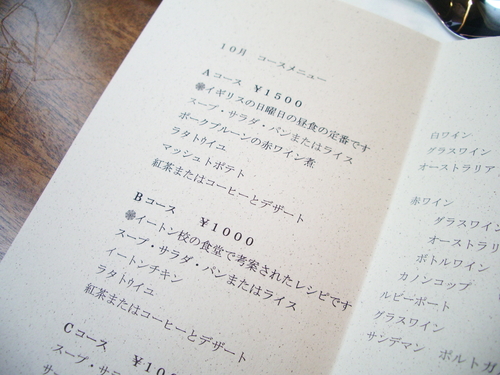 10月 コースメニュー
Aコース ¥1500
❋イギリスの日曜日の昼食の定番です
スープ・サラダ・パンまたはライス
ポークプルーンの赤ワイン煮
ラタトゥイユ
マッシュトポテト
紅茶またはコーヒーとデザート
Bコース ¥1000
❋イートン校の食堂で考案されたレシピです
スープ・サラダ・パンまたはライス
イートンチキン
ラタトゥイユ
紅茶またはコーヒーとデザート
Cコース
スープ・サラダ
白ワイン
グラスワイン
オーストラリア
赤ワイン
グラスワイン
オーストラリ
ボトルワイン
カノンコップ
ルビーポート
グラスワイン
サンデマン ポルトガ